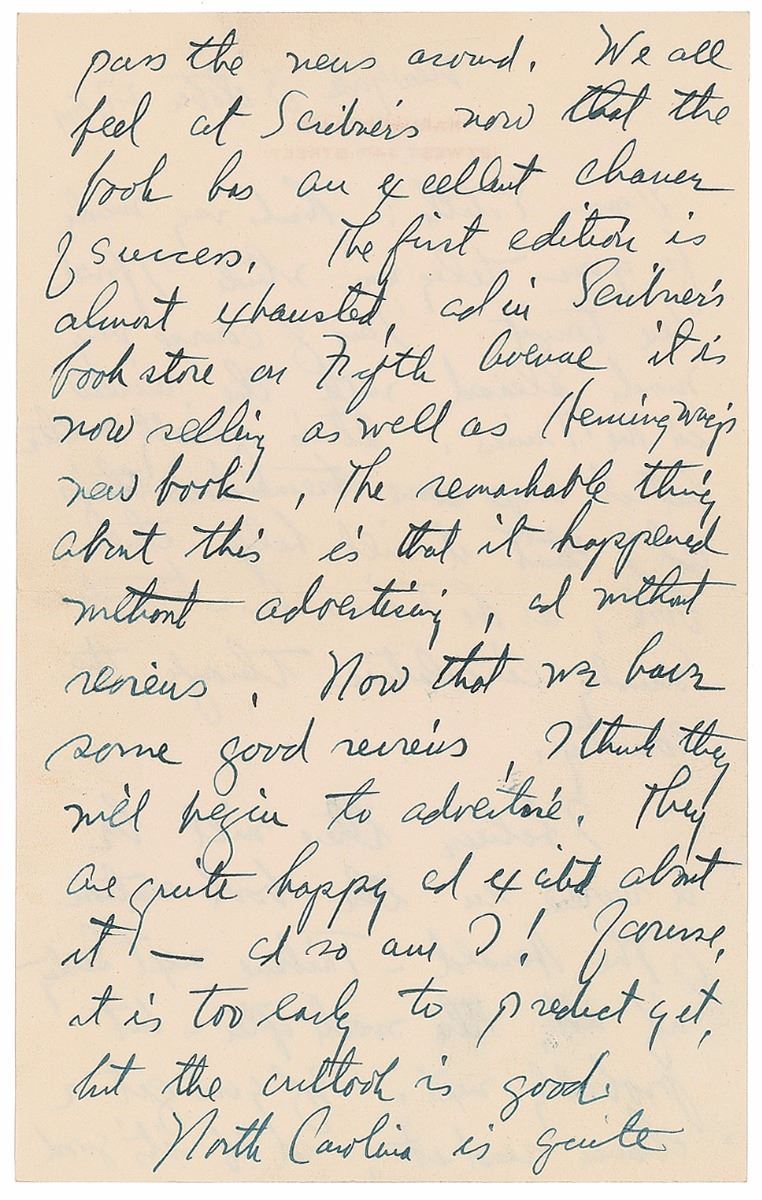 pass the news around. We all
feel at Scribner's now that the
book has an excellent chance
of success. The first edition is
almost exhausted, and in Scribner's
bookstore on Fifth Avenue it is
now selling as well as Hemingway's
new book. The remarkable thing
about this is that it happened
without advertising, and without
reviews. Now that we have
some good reviews, I think they
will begin to advertise. They
are quite happy and excited about
it — and so am I! Of course,
it is too early to predict yet,
but the outlook is good.
North Carolina is quite